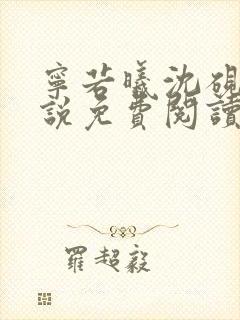 寧若曦沈硯
說免費閱讀
羅超毅